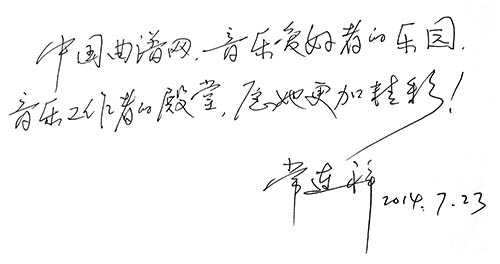 中国曲谱网,音乐爱好者的乐园,
音乐工作者的殿堂,愿她更加精彩!
常连祥
2014.7.23